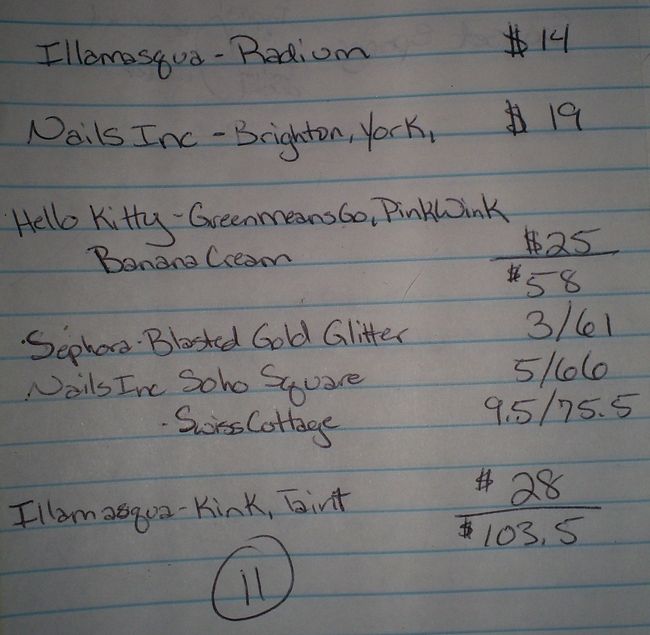 Illamasqua - Radium $14
Nails Inc - Brighton, York, $19
Hello Kitty - GreenmeansGo, PinkWink
Banana Cream $25
$58
Sephora - Blasted Gold Glitter 3/61
Nails Inc Soho Square 5/66
- Swiss Cottage 9.5/75.5
Illamasqua - Kink, Taint $28
$103.5
11